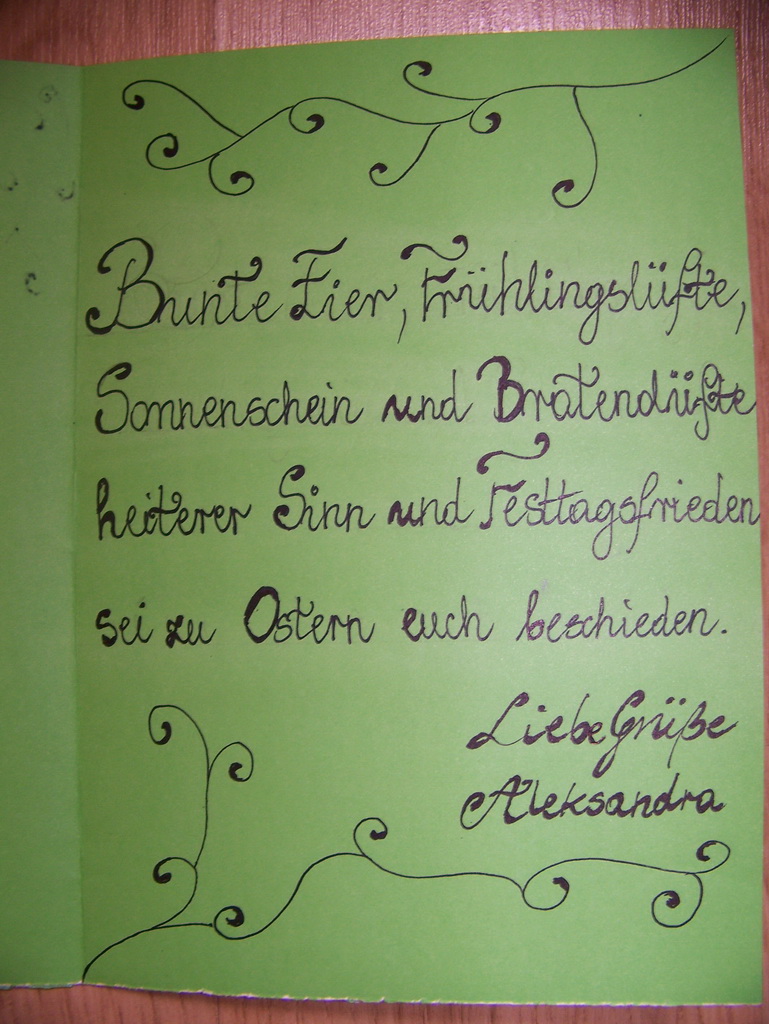 Bunte Eier, Frühlingslüfte,
Sonnenschein und Bratendüfte
heiterer Sinn und Festtagsfrieden
sei zu Ostern euch beschieden.
Liebe Grüße
Aleksandra